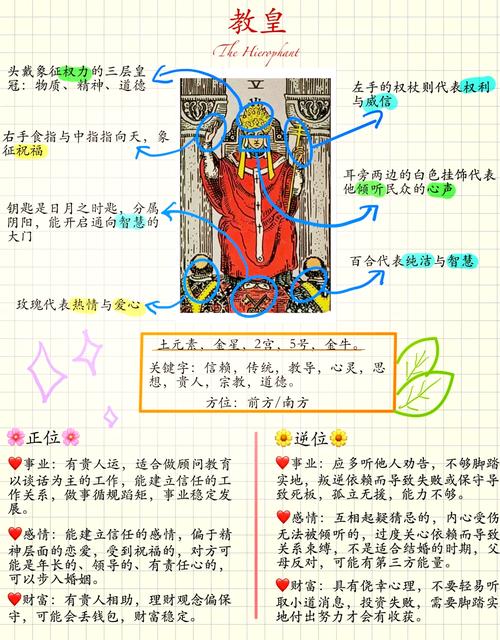 教皇
The Hierophant
头戴象征权力的三层皇
冠：物质、精神、道德
左手的权杖则代表权利
与威信
右手食指与中指指向天，象
征祝福
耳旁两边的白色挂饰代表
他倾听民众的心声
钥匙是日月之时匙，分属
阴阳，能开启通向智慧的
大门
百合代表纯洁与智慧
玫瑰代表热情与爱心
V
土元素，金星，2宫，5号，金牛。
关键字：信赖，传统，教导，心灵，思
想，贵人，宗教，道德。
方位：前方/南方
正位
事业：有贵人运，适合做顾问教育
以谈话为主的工作，能建立信任的工
作关系，做事循规蹈矩，事业稳定发
展。
感情：能建立信任的感情，偏于精
神层面的恋爱，受到祝福的，对方可
能是年长的、领导的、有责任心的，
可以步入婚姻。
财富：有贵人相助，理财观念偏保
守，可能会丢钱包，财富稳定。
逆位
事业：应多听他人劝告，不够脚踏
实地，叛逆依赖而导致失败或保守导
致死板，孤立无援，能力不够。
感情：互相起疑猜忌的，内心受伤
无法被倾听的，过度关心依赖而导致
关系束缚，不是适合结婚的时期，父
母反对，可能有第三方能量。
财富：具有侥幸心理，不要轻易听
取小道消息，投资失败，需要脚踏实
地付出努力才会有收获。